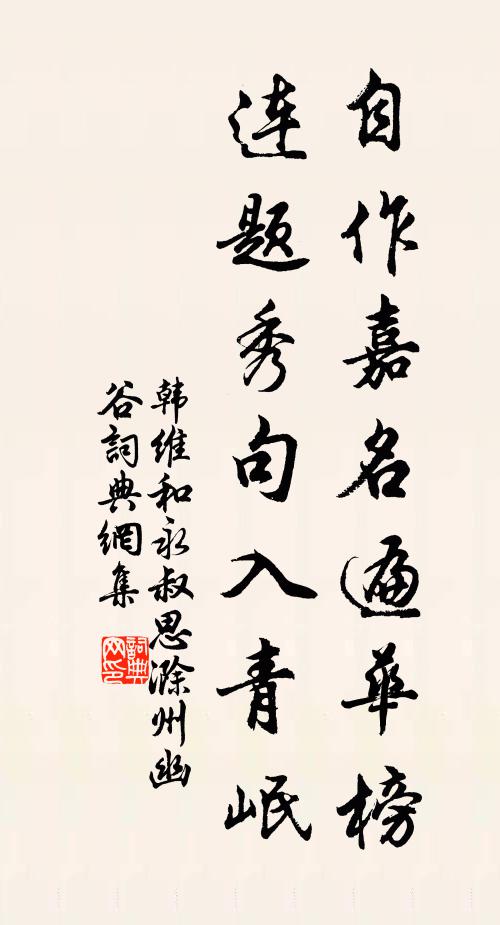 自作嘉名遍華榜
连题秀句入青岷
韩维和永叔思滁州幽
谷詞典網集
詞典
网印